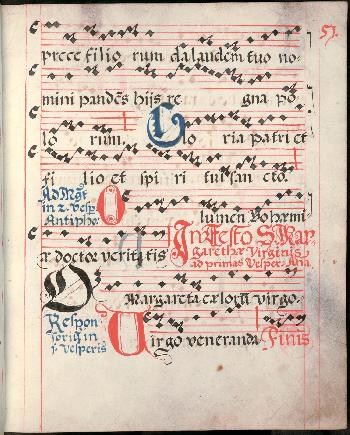 51
prece filio rum da laudem tuo no-
mini pandēs hijs re gna po
lo rum. Glo ria patri et
fi lio et spi ri tui san cto.
Ad Mgt
in 2. vesp
Antipho
O lumen Bohæmi
æ doctor veritatis
In Festo S. Mar-
garethæ Virginis
ad primas Vesper: Ana
O Margareta cælorū virgo.
Respon
sorium in
j. vesperis
Virgo veneranda Finis